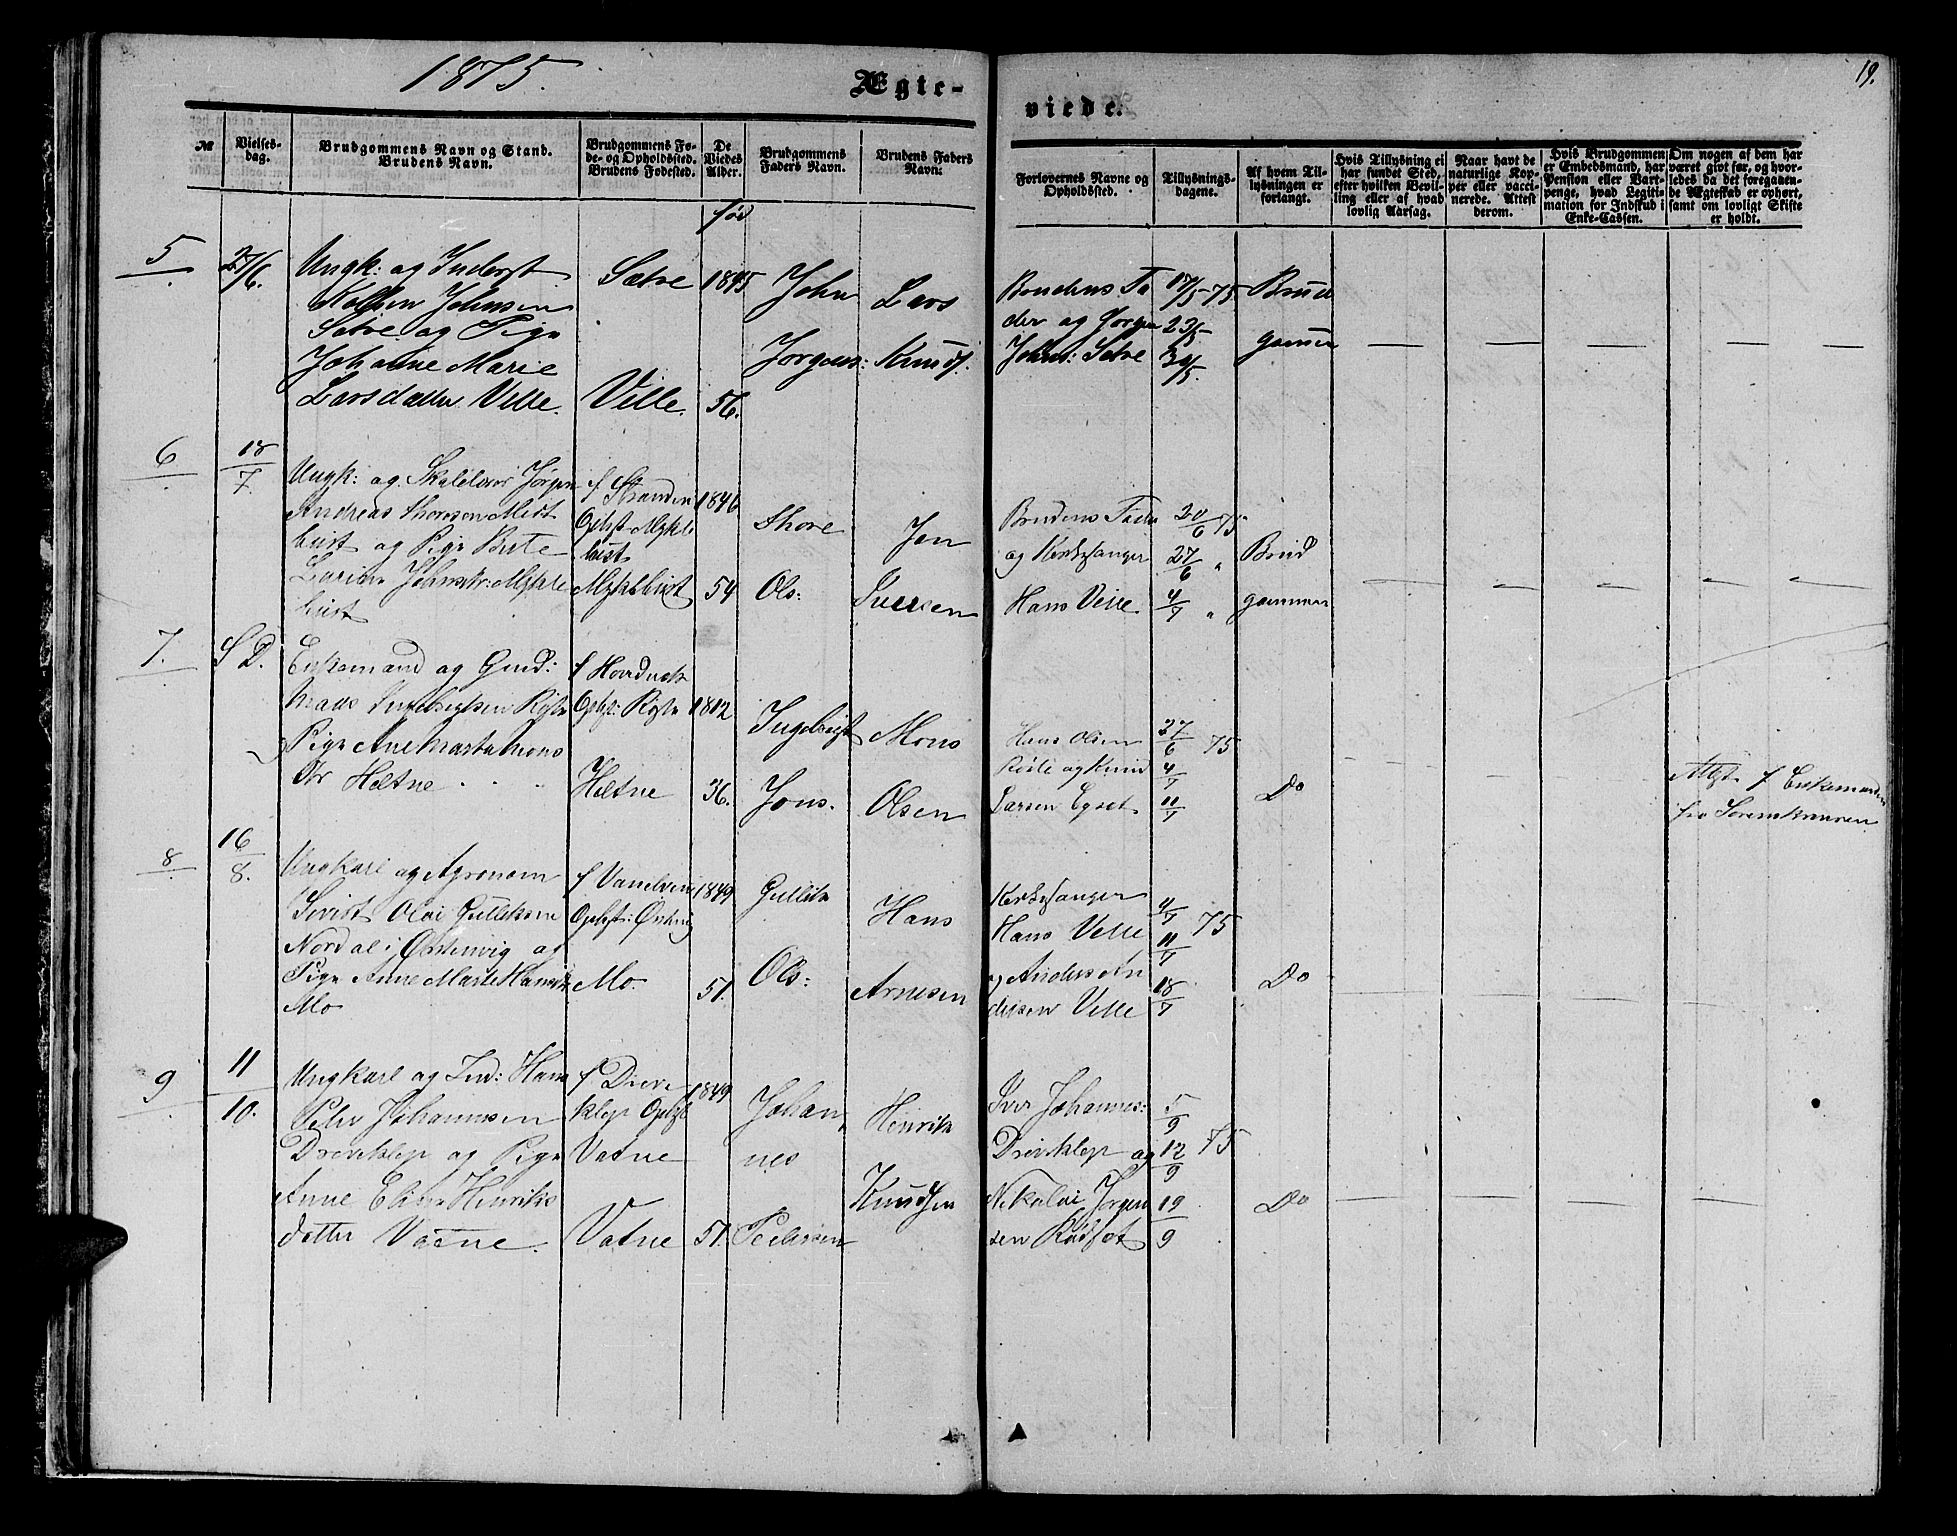 1875.
Ægte-
viede.
19.
№
Vielses-
dag.
Brudgommens Navn og Stand.
Brudens Navn.
Brudgommens Fø-
de- og Opholdssted.
Brudens Fødested.
De
Viedes
Alder.
Brudgommens
Faders Navn.
Brudens Faders
Navn:
Forlovernes Navne og
Opholdssted.
Tillysnings-
dagene.
Af hvem Til-
lysningen er
forlangt.
Hvis Tillysning ei
har fundet Sted,
efter hvilken Bevil-
ling eller af hvad
lovlig Aarsag.
Naar havt de
naturlige Kop-
per eller vacci-
nerede. Attest
derom.
Hvis Brudgommen
er Embedsmand, har
Pension eller Vart-
penge, hvad Legiti-
mation for Indskud i
Enke-Cassen.
Om nogen af dem har
været givt før, og hvor-
ledes da det foregaaen-
de Ægteskab er ophørt,
samt om lovligt Skifte
er holdt.
fød
5
27/6.
Ungk: og Inderst
Johnsen
Sætre og Pige
Johanne Marie
Larsdatter Velle.
Sætre
Velle.
1845
56.
John
Jørgens:
Lars
Knuds.
Brudens Fa
der og Jørgen
Johns: Sætre
17/5 75
23/5
30/5.
Brud
gommen
6
18/7.
Ungk: og Jørgen
Andreas Thoresen Mykle
bust og Pige Berte
Johnsdtr: Mykle
bust
f Stranden
Opholdst Mykle
bust
Myklebust
1846
54
Thore
Ols:
Jon
Iversen
Brudens Fader
og Kirkesanger
Hans Velle
20/6 75
27/6 "
4/7 "
Brud
gommen
7.
S D.
Enkemand og Gmd:
Mads Ingebrigtsen
Pige Ane Marta Mons
dtr Hætne
Hætne
1812
36.
Ingebrigt
Jons.
Mons
Olsen
Hans Olsen
og Knud
Larsen Egset
27/6 75
4/7
11/7
Do
Attest f Enkemanden
fra Sorenskriveren
8
16/8.
Ungkarl og Agronom
Sivert Olai Gulleksen
Nordal i Ørstenvig og
Pige Anne Marte Hansdtr
Mo
f Vanelven
Opholdst: Ørstenvig
Mo.
1849
51.
Gullik
Ols:
Hans
Arnesen
Kirkesanger
Hans Velle
og Anders An
dersen Velle
4/7 75
11/7
18/7
Do
9
11/10.
Ungkarl og Ind: Hans
Peter Johannesen
Driveklep og Pige
Anne Eline Henriks
datter Vatne.
f Drive
klep Opholdst
Vatne
Vatne
1849
51.
Johan,
nes
Pedersen
Henrik
Knudsen
Iver Johannes:
Driveklep og
Nikolai Jørgen
sen Rødset
5/9
12/9 75
19/9
Do